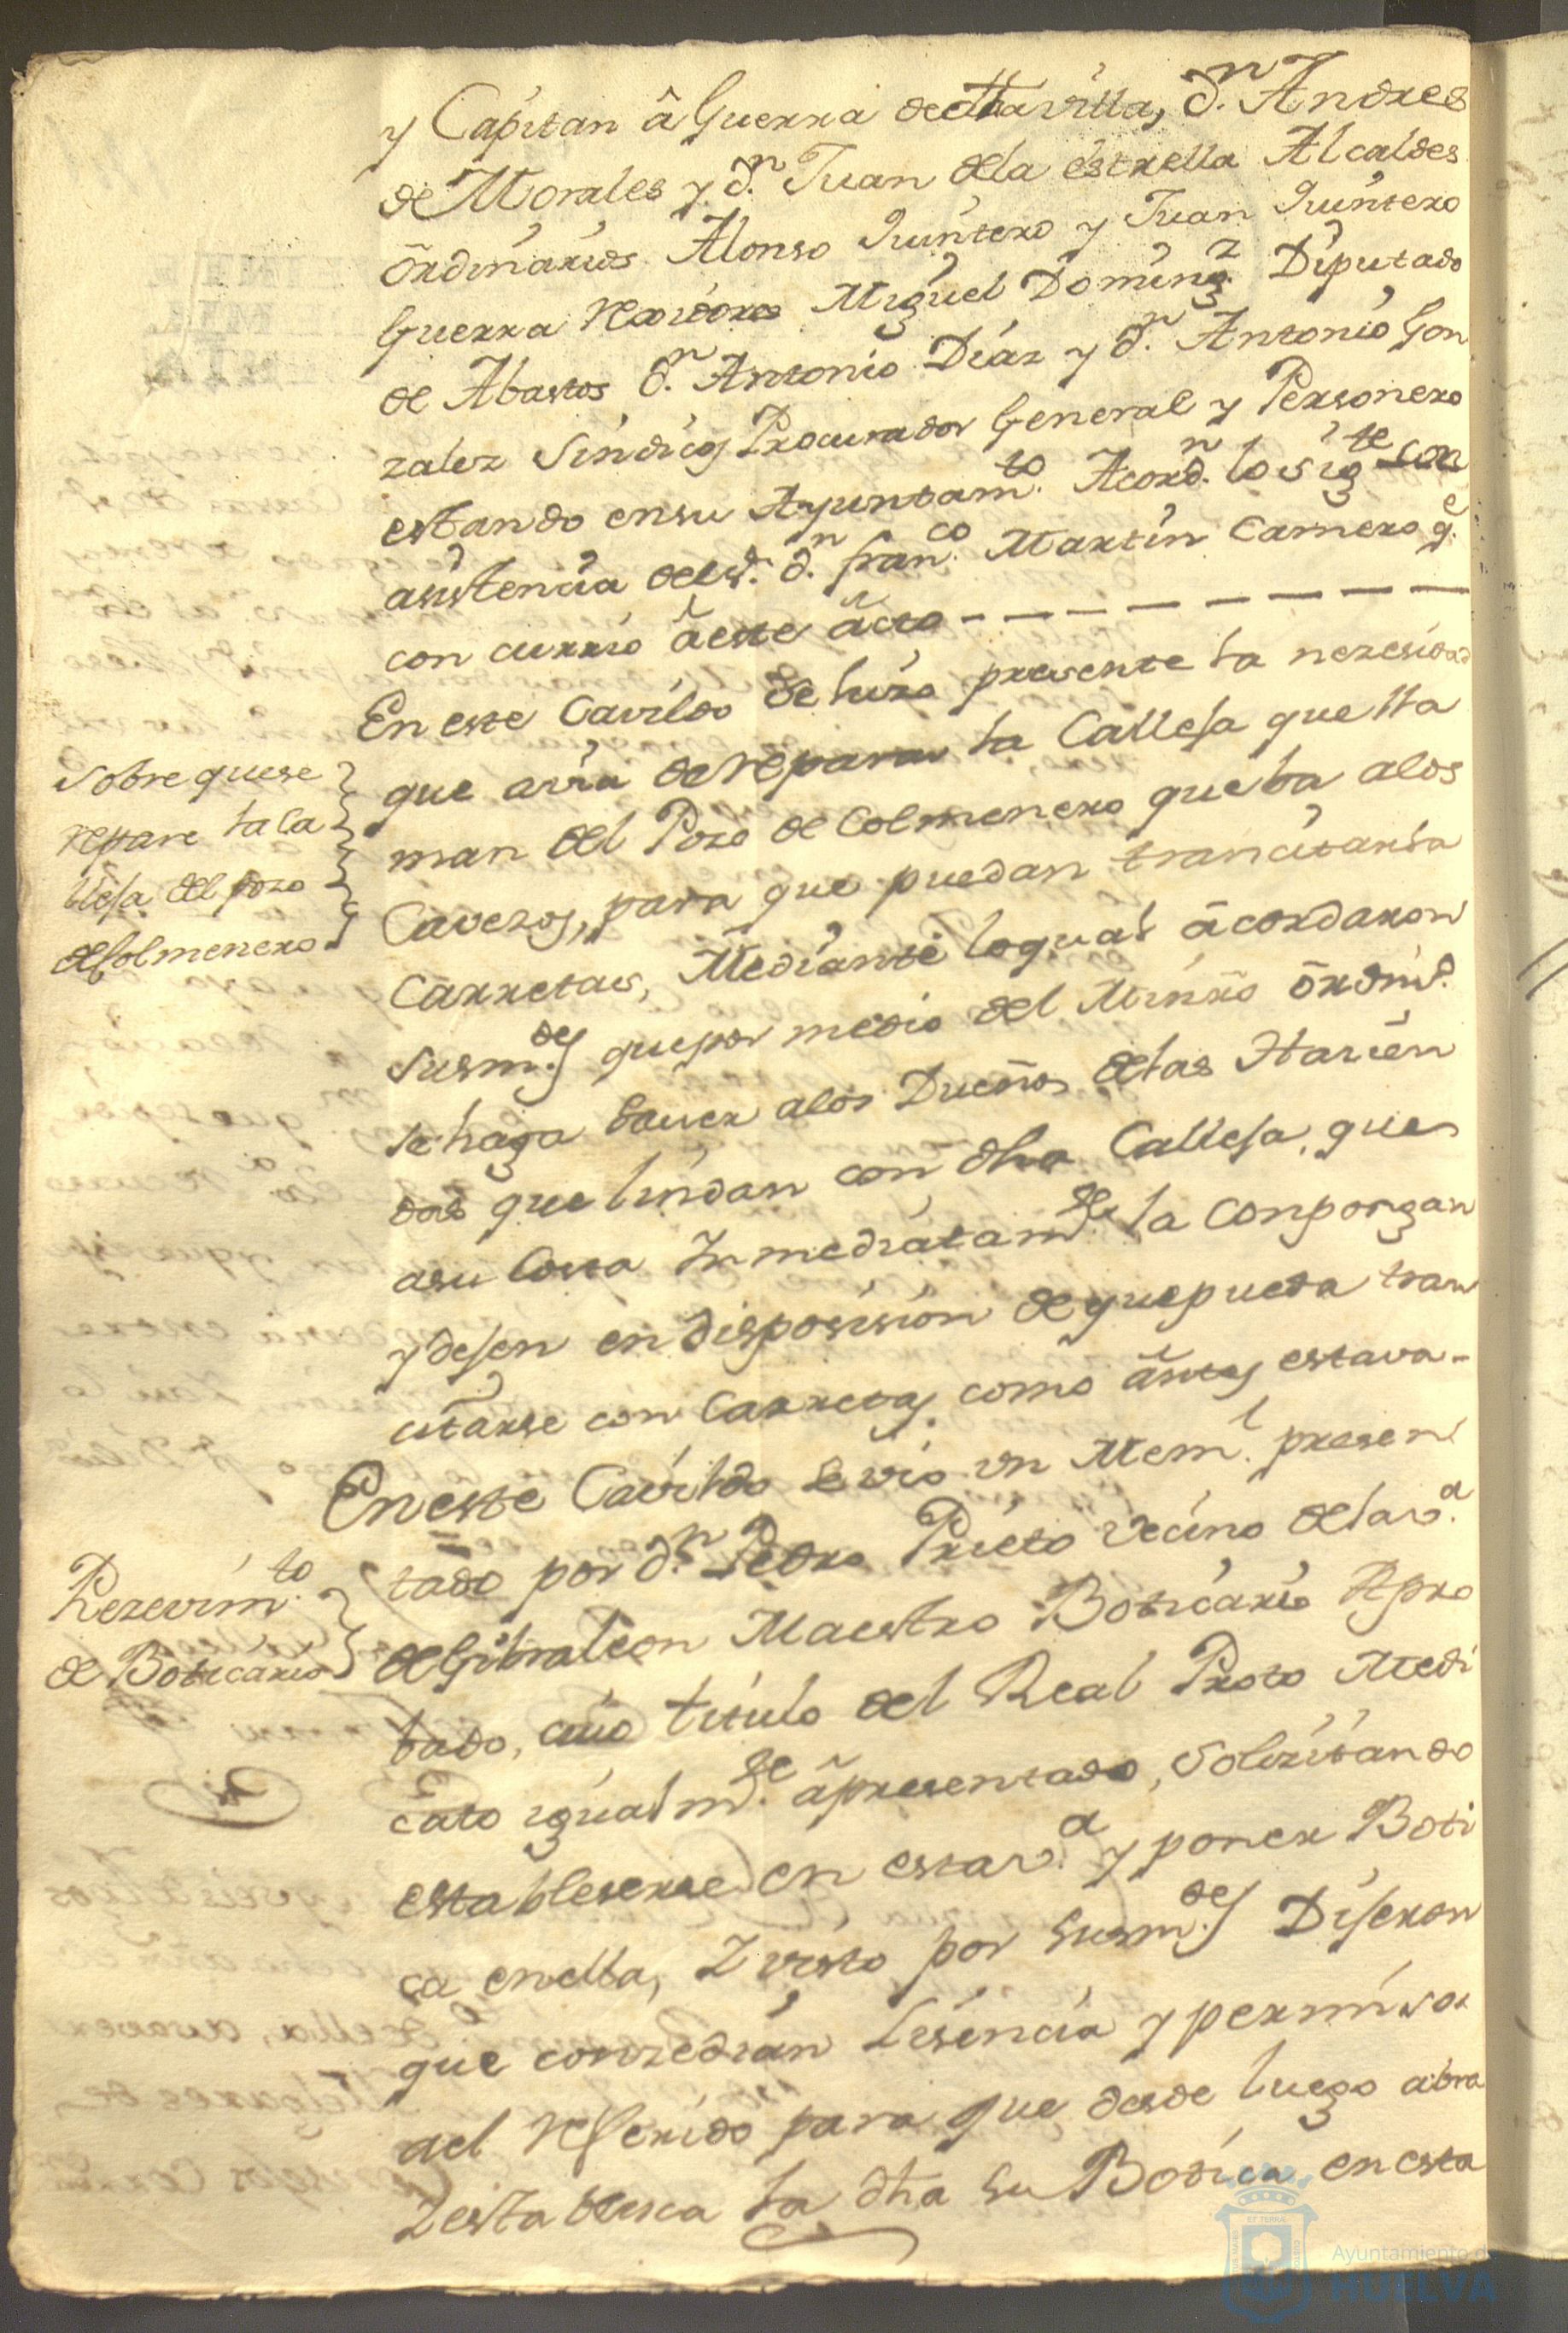 y Capitan â Guerra de esta villa, d.n Andres
de Morales y d.n Juan de la estrella Alcaldes
õrdinarios Alonso Quintero y Juan Quintero
Guerra rexidores Miguel Doming.z Diputado
de Abastos d.n Antonio Diaz y d.n Antonio Gon
zalez Sindicos Procurador General y Personero
estando ensu Ayuntam.to Acord.n lo sig.te con
asistencia del s.r d.n fran.co Martin Carnero q.e
con currio ã este ãcto
En este Cavildo se hizo presente la nezesidad
que avia de reparar la Calleja que lla
man del Pozo de Colmenero que ba alos
Cavezos, para que puedan trancitarla
Carretas, Mediante loqual ãcordaron
susm.des que por medio del Minrõ õrdin.o
se haga saver alos Dueños delas Hazien
das que lindan con dha Calleja, que
asu Costa Inmediatam.te la Conpongan
y dejen en disposision de que pueda tran
citarse con Carretas como ãntes estava-
En este Cavildo se vio un Mem.l presen
tado por d.n Pedro Prieto vecino dela v.a
de Gibraleon Maestro Boticario Apro
bado, cuio titulo del Real Proto Medi
cato igualm.te ã presentado, Solizitando
estableserse en esta v.a y poner Boti
ca enella, I visto por susm.des Dijeron
que conzedian Lisencia y permiso
ael referido para que desde luego abra
I establesca la dha su Botica en esta
Sobre quese
repare la Ca
lleja del pozo
de Colmenero
Rezevim.to
de Boticario
Ayuntamiento de
HUELVA